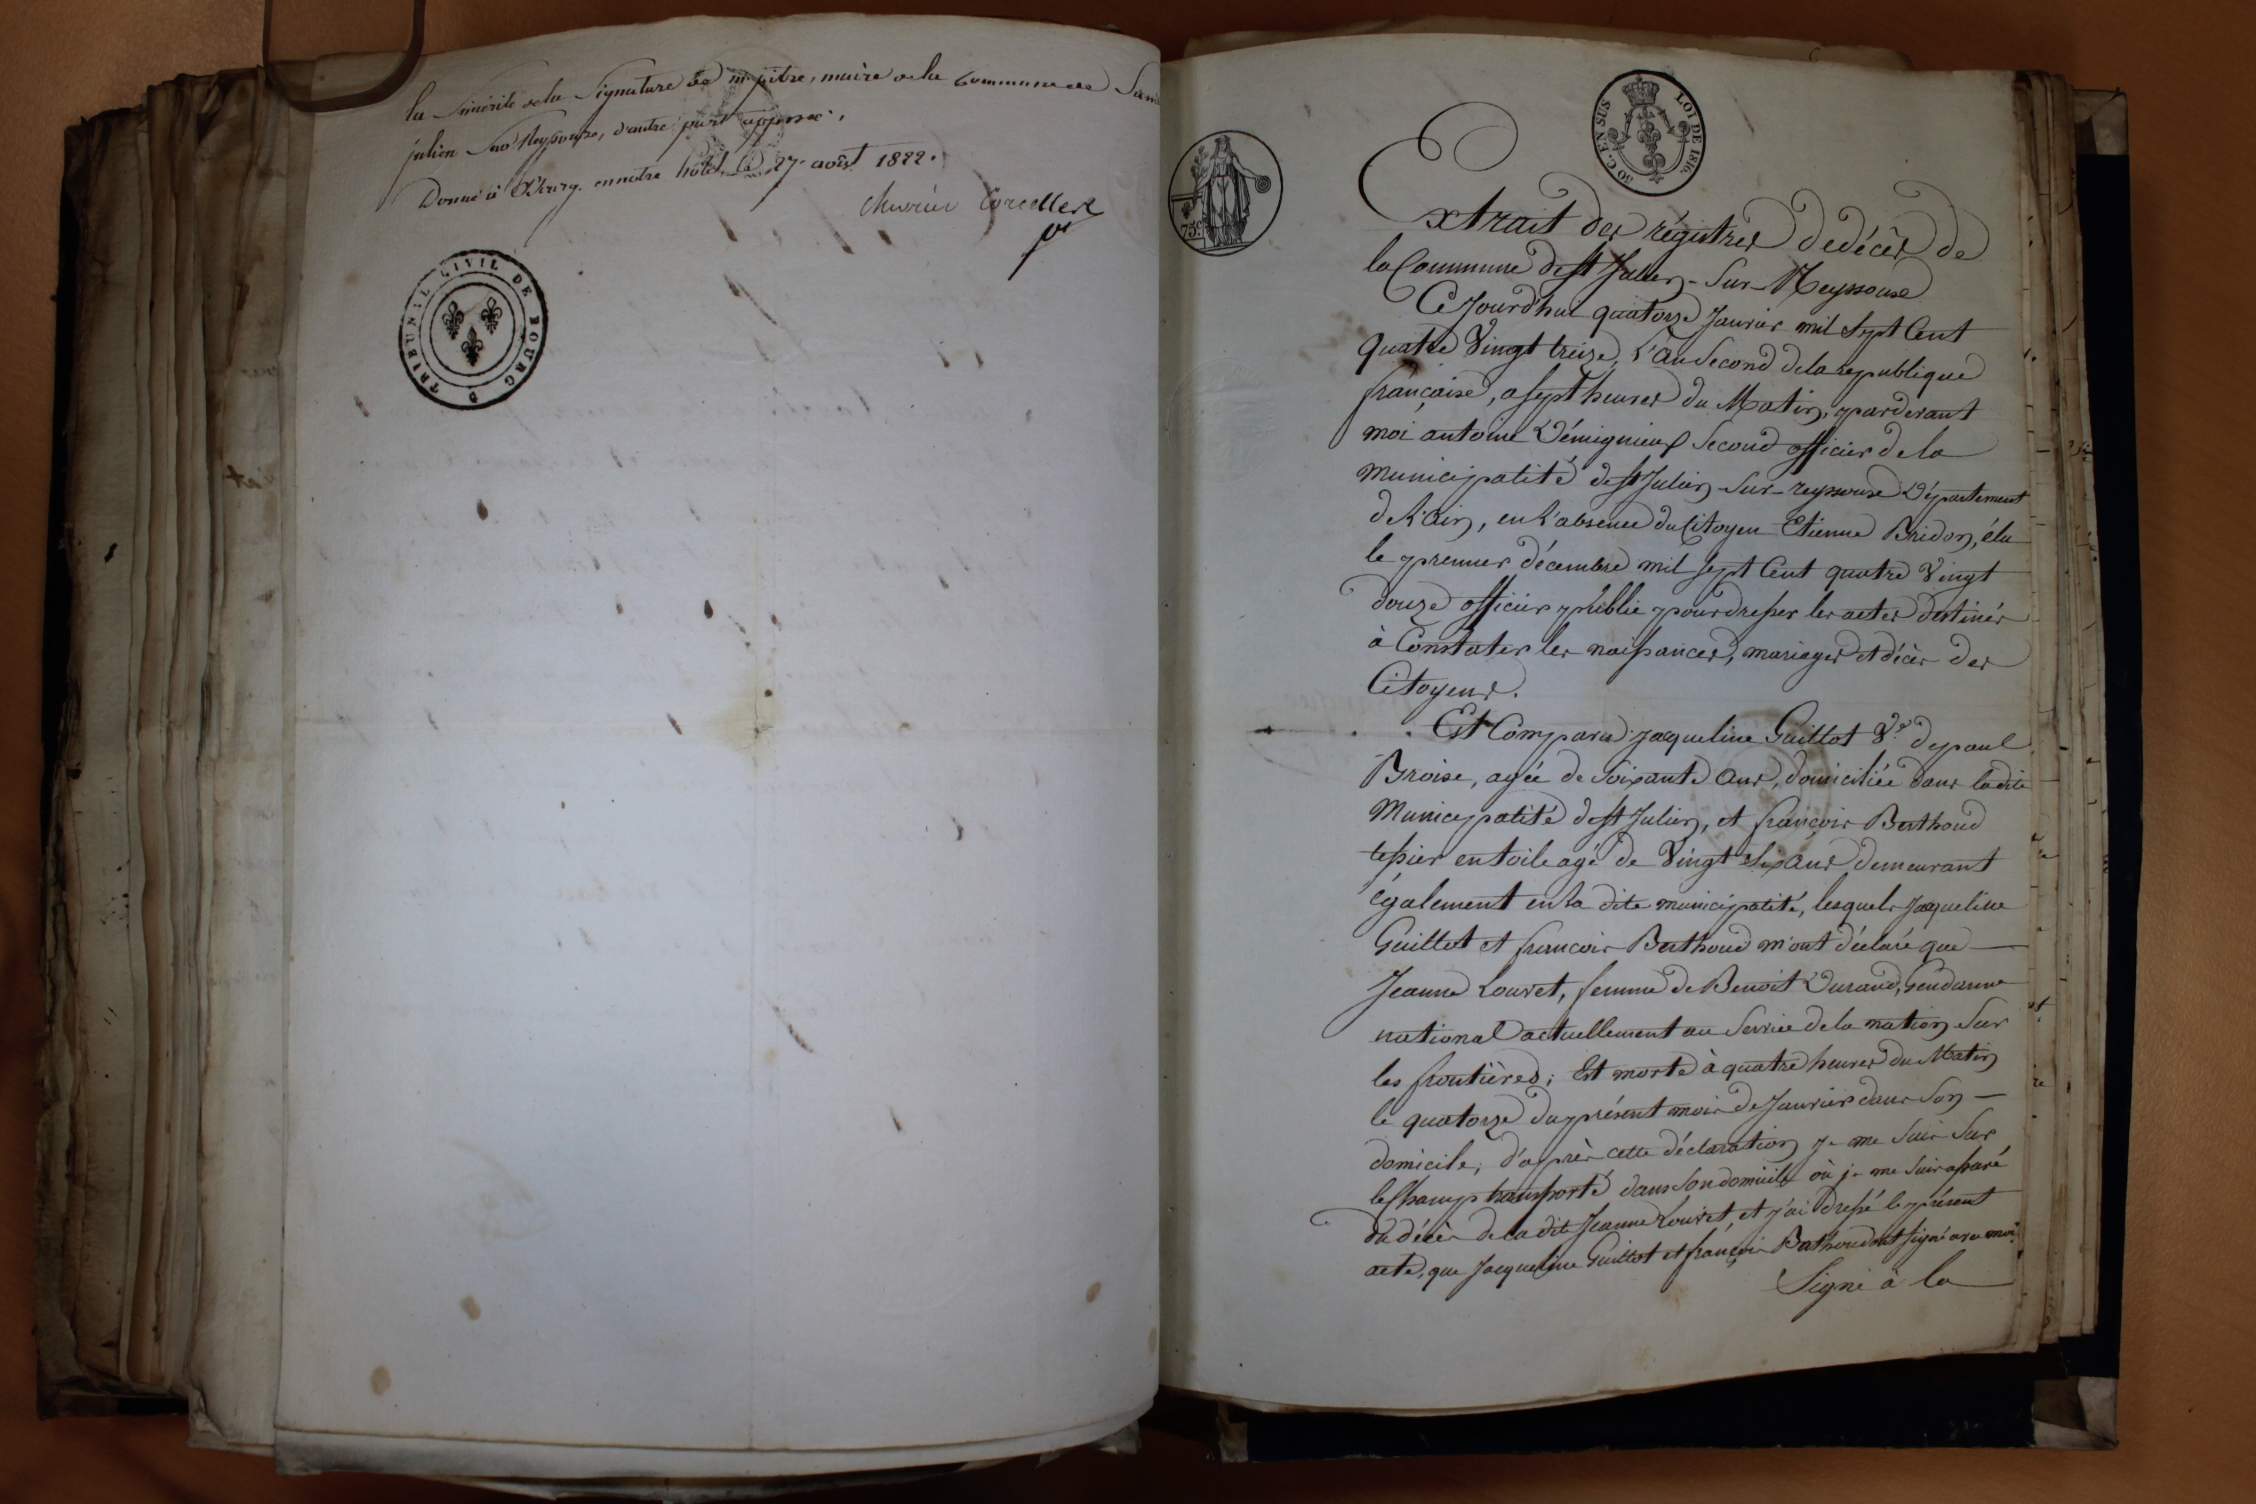 la sincérité de la Signature de m. pitre, maire de la Commune de Saint
julien Sur Reyssouze, d'autre part apposée.
Donné à Bourg. en notre hôtel, le 27. août 1822.
Chevrier Corcelles
TRIBUNAL CIVIL DE BOURG
75c
50 C. EN SUS
LOI DE 1816.
Extrait des régistres de décès de
la Commune de St Julien-Sur-Reyssouse
Cejourd'hui quatorze Janvier mil Sept Cent
quatre Vingt treize, L'an Second de la republique
française, a Sept heures du Matin, pardevant
moi antoine Second officier de la
Municipalité de St Julien-Sur-reyssouse Département
de L'ain, en L'absence du Citoyen Etienne Bridon, élu
le premier décembre mil Sept Cent quatre Vingt
douze officier public pour dresser les actes destinés
à Constater les naissances, mariages et décès des
Citoyens.
Est Comparu jacqueline Guillot Ve de paul
Broise, agée de Soixante ans, domiciliée dans la dite
Municipalité de St Julien, et françois Berthoud
tessier en toile agé de Vingt Six ans demeurant
également en la dite municipalité, lesquels Jacqueline
Guillot et francois Berthoud m'ont déclaré que
Jeanne Louvet, femme de Benoit Durand, Gendarme
national actuellement au Service de la nation Sur
les frontières; Est morte à quatre heures du Matin
le quatorze du présent mois de Janvier dans Son
domicile; d'après cette déclaration je me suis Sur
le Champ transporté dans Son domicile où je me suis assuré
du décès de la dite Jeanne Louvet, et j'ai dressé le présent
acte, que Jacqueline Guillot et françois Berthoud ont signé avec moi.
Signé à la